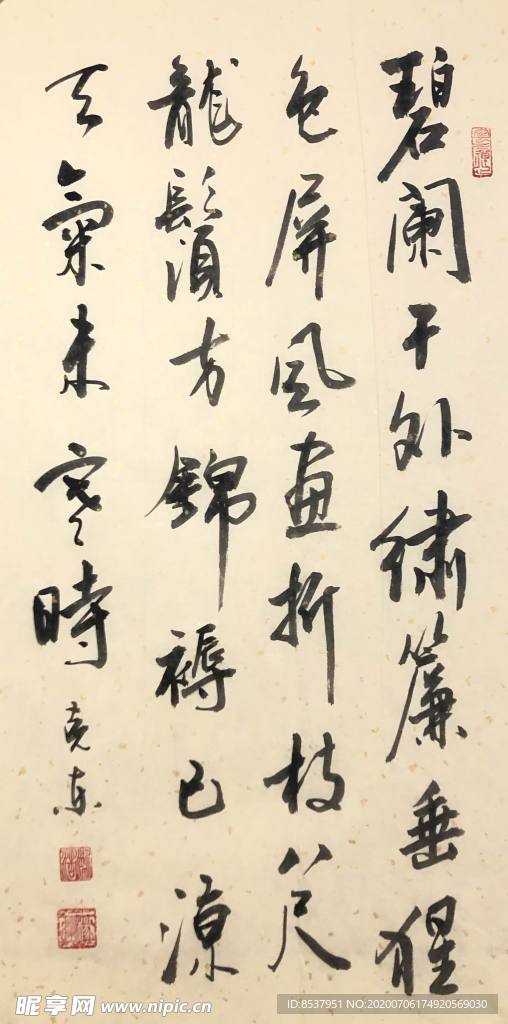 碧阑干外绣簾垂猩
色屏风画折枝八尺
龍鬚方錦褥已凉
天氣未寒時
克东
昵享网 www.nipic.cn
ID:8537951 NO:20200706174920569030